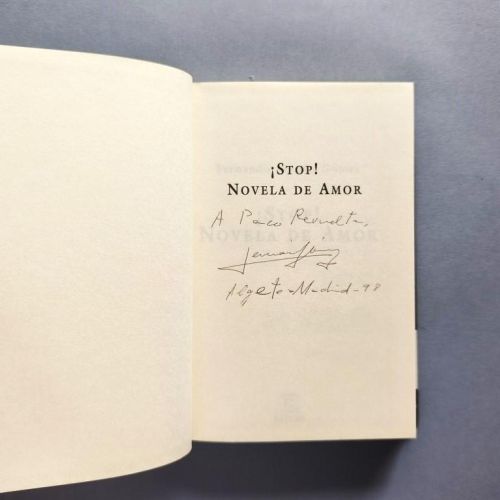 ¡STOP!
NOVELA DE AMOR
A Paco Revuelta,
Madrid-98